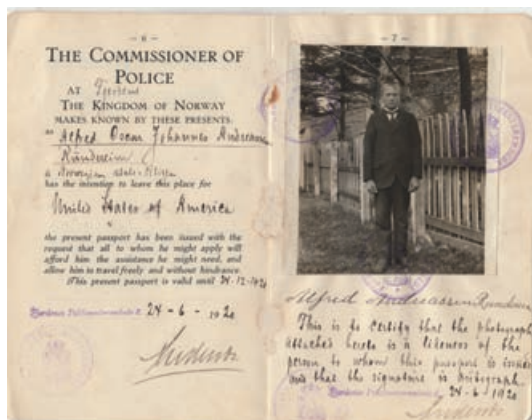 – 6 –
THE COMMISSIONER OF
POLICE
AT
THE KINGDOM OF NORWAY
MAKES KNOWN BY THESE PRESENTS:
Alfred Oscar Johannes Andreassen
a Norwegian
has the intention to leave this place for
United States of America
the present passport has been issued with the
request that all to whom he might apply will
afford him the assistance he might need, and
allow him to travel freely and without hindrance.
This present passport is valid until 24-12-1920
24-6-1920
– 7 –
Alfred Andreassen
This is to certify that the photograph
attached hereto is a likeness of the
person to whom this passport is issued
and that the signature is autograph.
24-6 1920